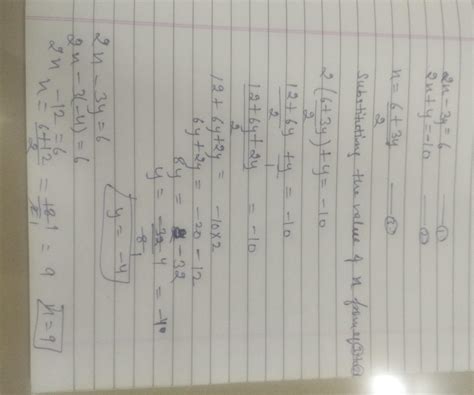 2x - 3y = 6 —— ①
2x + y = -10 —— ②
x = 6 + 3y / 2 —— ③
Substituting the value of x from
2 (6 + 3y / 2) + y = -10
12 + 6y / 2 + y / 1 = -10
12 + 6y + 2y / 2 = -10
12 + 6y + 2y = -10 x 2
6y + 2y = -20 - 12
8y = -32
y = -32 / 8 -4 = -4
y = -4
2x - 3y = 6
2x - 3(-4) = 6
2x - 12 = 6
x = 6 + 12 / 2 = 18 / 2 = 9
x = 9